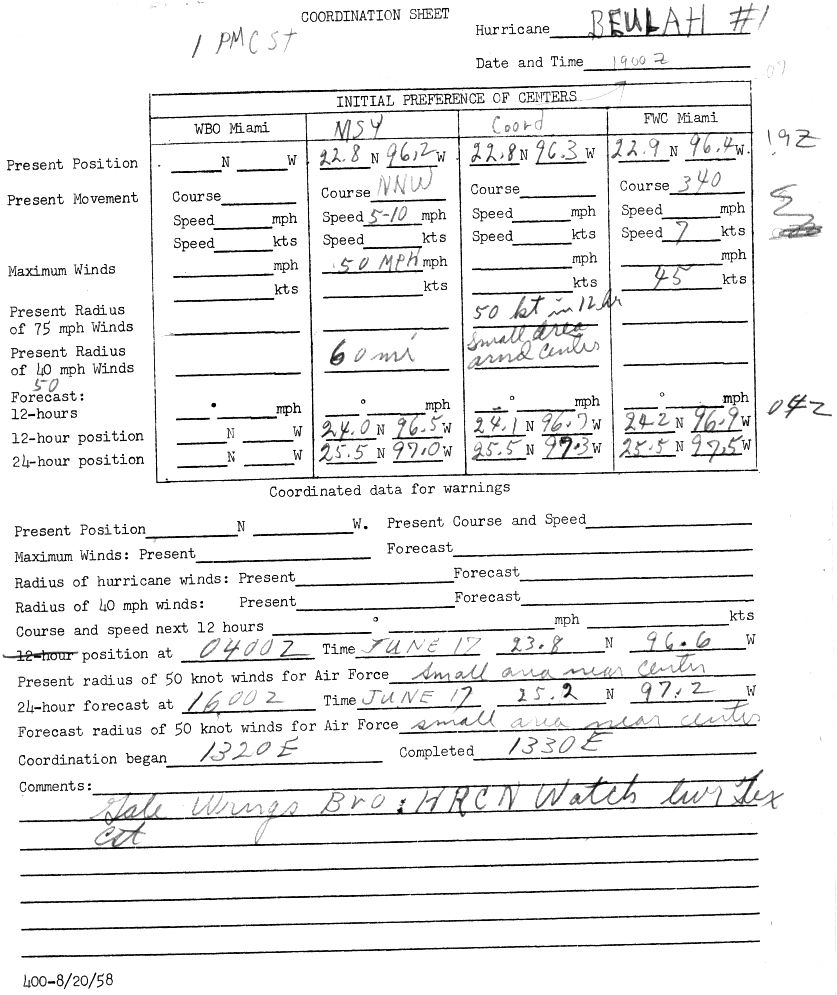 COORDINATION SHEET
1 PM CST
Hurricane BEULAH #1
Date and Time 1900 Z
07
INITIAL PREFERENCE OF CENTERS
WBO Miami MSY Coord FWC Miami
Present Position N W 22.8 N 96.2 W 22.8 N 96.3 W 22.9 N 96.4 W. 19Z
Present Movement Course Course NNW Course Course 340
Speed mph Speed 5-10 mph Speed mph Speed mph
Speed kts Speed kts Speed kts Speed 7 kts
Maximum Winds mph 50 MPH mph mph mph
kts kts kts 45 kts
Present Radius of 75 mph Winds 50 kt in 12 hr
Present Radius of 40 mph Winds 60 mi small area arnd center
50
Forecast:
12-hours ° mph ° mph ° mph ° mph 04Z
12-hour position N W 24.0 N 96.5 W 24.1 N 96.7 W 24.2 N 96.9 W
24-hour position N W 25.5 N 97.0 W 25.5 N 97.3 W 25.5 N 97.5 W
Coordinated data for warnings
Present Position N W. Present Course and Speed
Maximum Winds: Present Forecast
Radius of hurricane winds: Present Forecast
Radius of 40 mph winds: Present Forecast
Course and speed next 12 hours ° mph kts
12-hour position at 0400Z Time JUNE 17 23.8 N 96.6 W
Present radius of 50 knot winds for Air Force small area near center
24-hour forecast at 1600Z Time JUNE 17 25.2 N 97.2 W
Forecast radius of 50 knot winds for Air Force small area near center
Coordination began 1320E Completed 1330E
Comments:
Gale Wrngs Bro: HRCN Watch lwr Tex
Cst
400-8/20/58